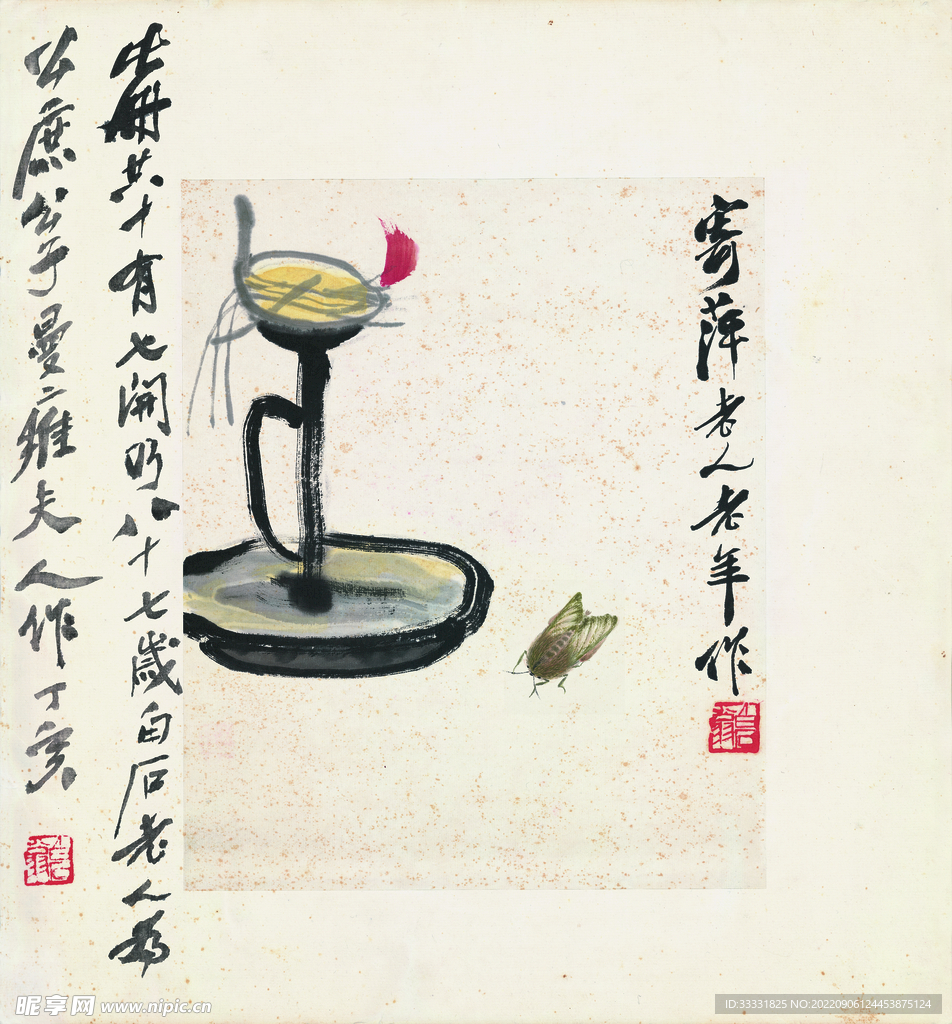 寄萍老人老年作
白石翁
此冊共十有七開乃八十七歲白石老人為
公庶公子曼雍夫人作丁亥
白石翁
昵享网 www.nipic.cn
ID:33331825 NO:20220906124453875124